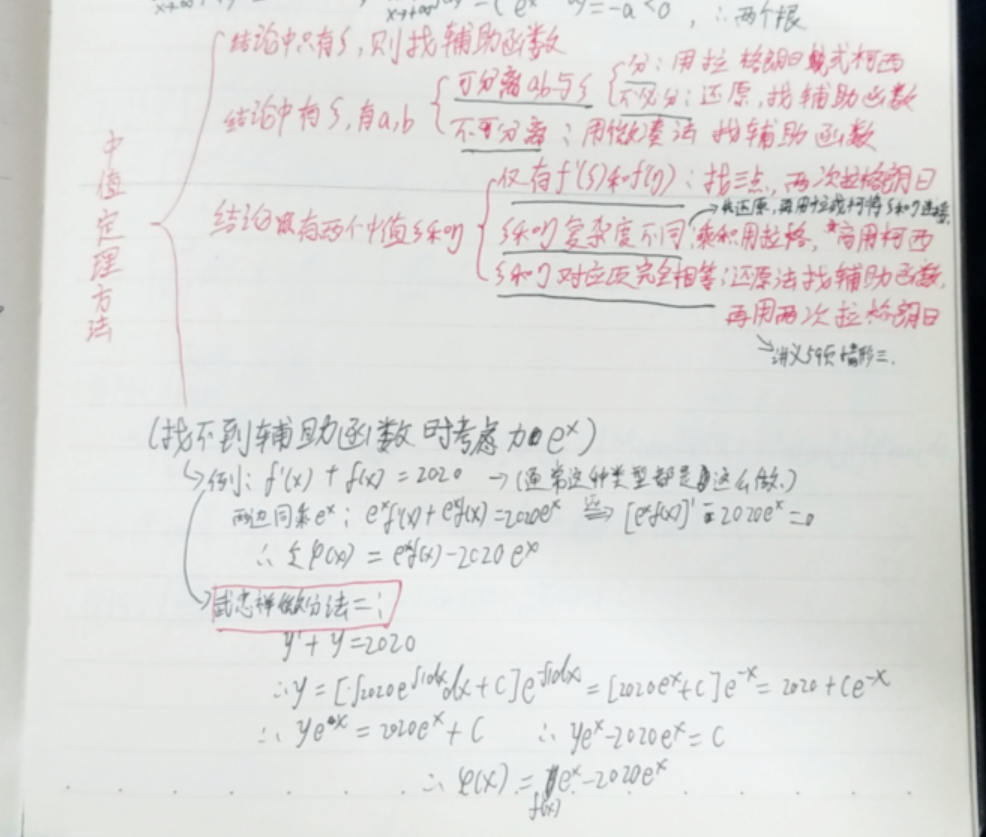 x→+∞ x→+∞ (e^x = -a < 0 , ∴两个根
中值定理方法
结论中只有ξ,则找辅助函数
结论中有ξ,有a,b
可分离ab与ξ
分:用拉格朗日或柯西
不分:还原,找辅助函数
不可分离:用微凑法找辅助函数
结论有两个中值ξ和η
仅有f'(ξ)和f'(η):找三点,两次拉格朗日
→先还原,再用拉或柯将ξ和η连接.
ξ和η复杂度不同 乘积用拉格,商用柯西
ξ和η对应项完全相等:还原法找辅助函数,
再用两次拉格朗日
↘讲义59页情形三.
(找不到辅助函数时考虑加e^x)
↳例: f'(x) + f(x) = 2020 →(通常这种类型都是这么做.)
两边同乘e^x: e^xf'(x)+e^xf(x)=2020e^x ⇒ [e^xf(x)]' - 2020e^x = 0
∴ 令φ(x) = e^xf(x) - 2020e^x
武忠祥微分法二:
y' + y = 2020
∴y = [∫2020e^{∫1dx}dx + C]e^{-∫1dx} = [2020e^x + C]e^{-x} = 2020 + Ce^{-x}
∴ ye^x = 2020e^x + C ∴ ye^x - 2020e^x = C
∴ φ(x) = e^x - 2020e^x
f(x)